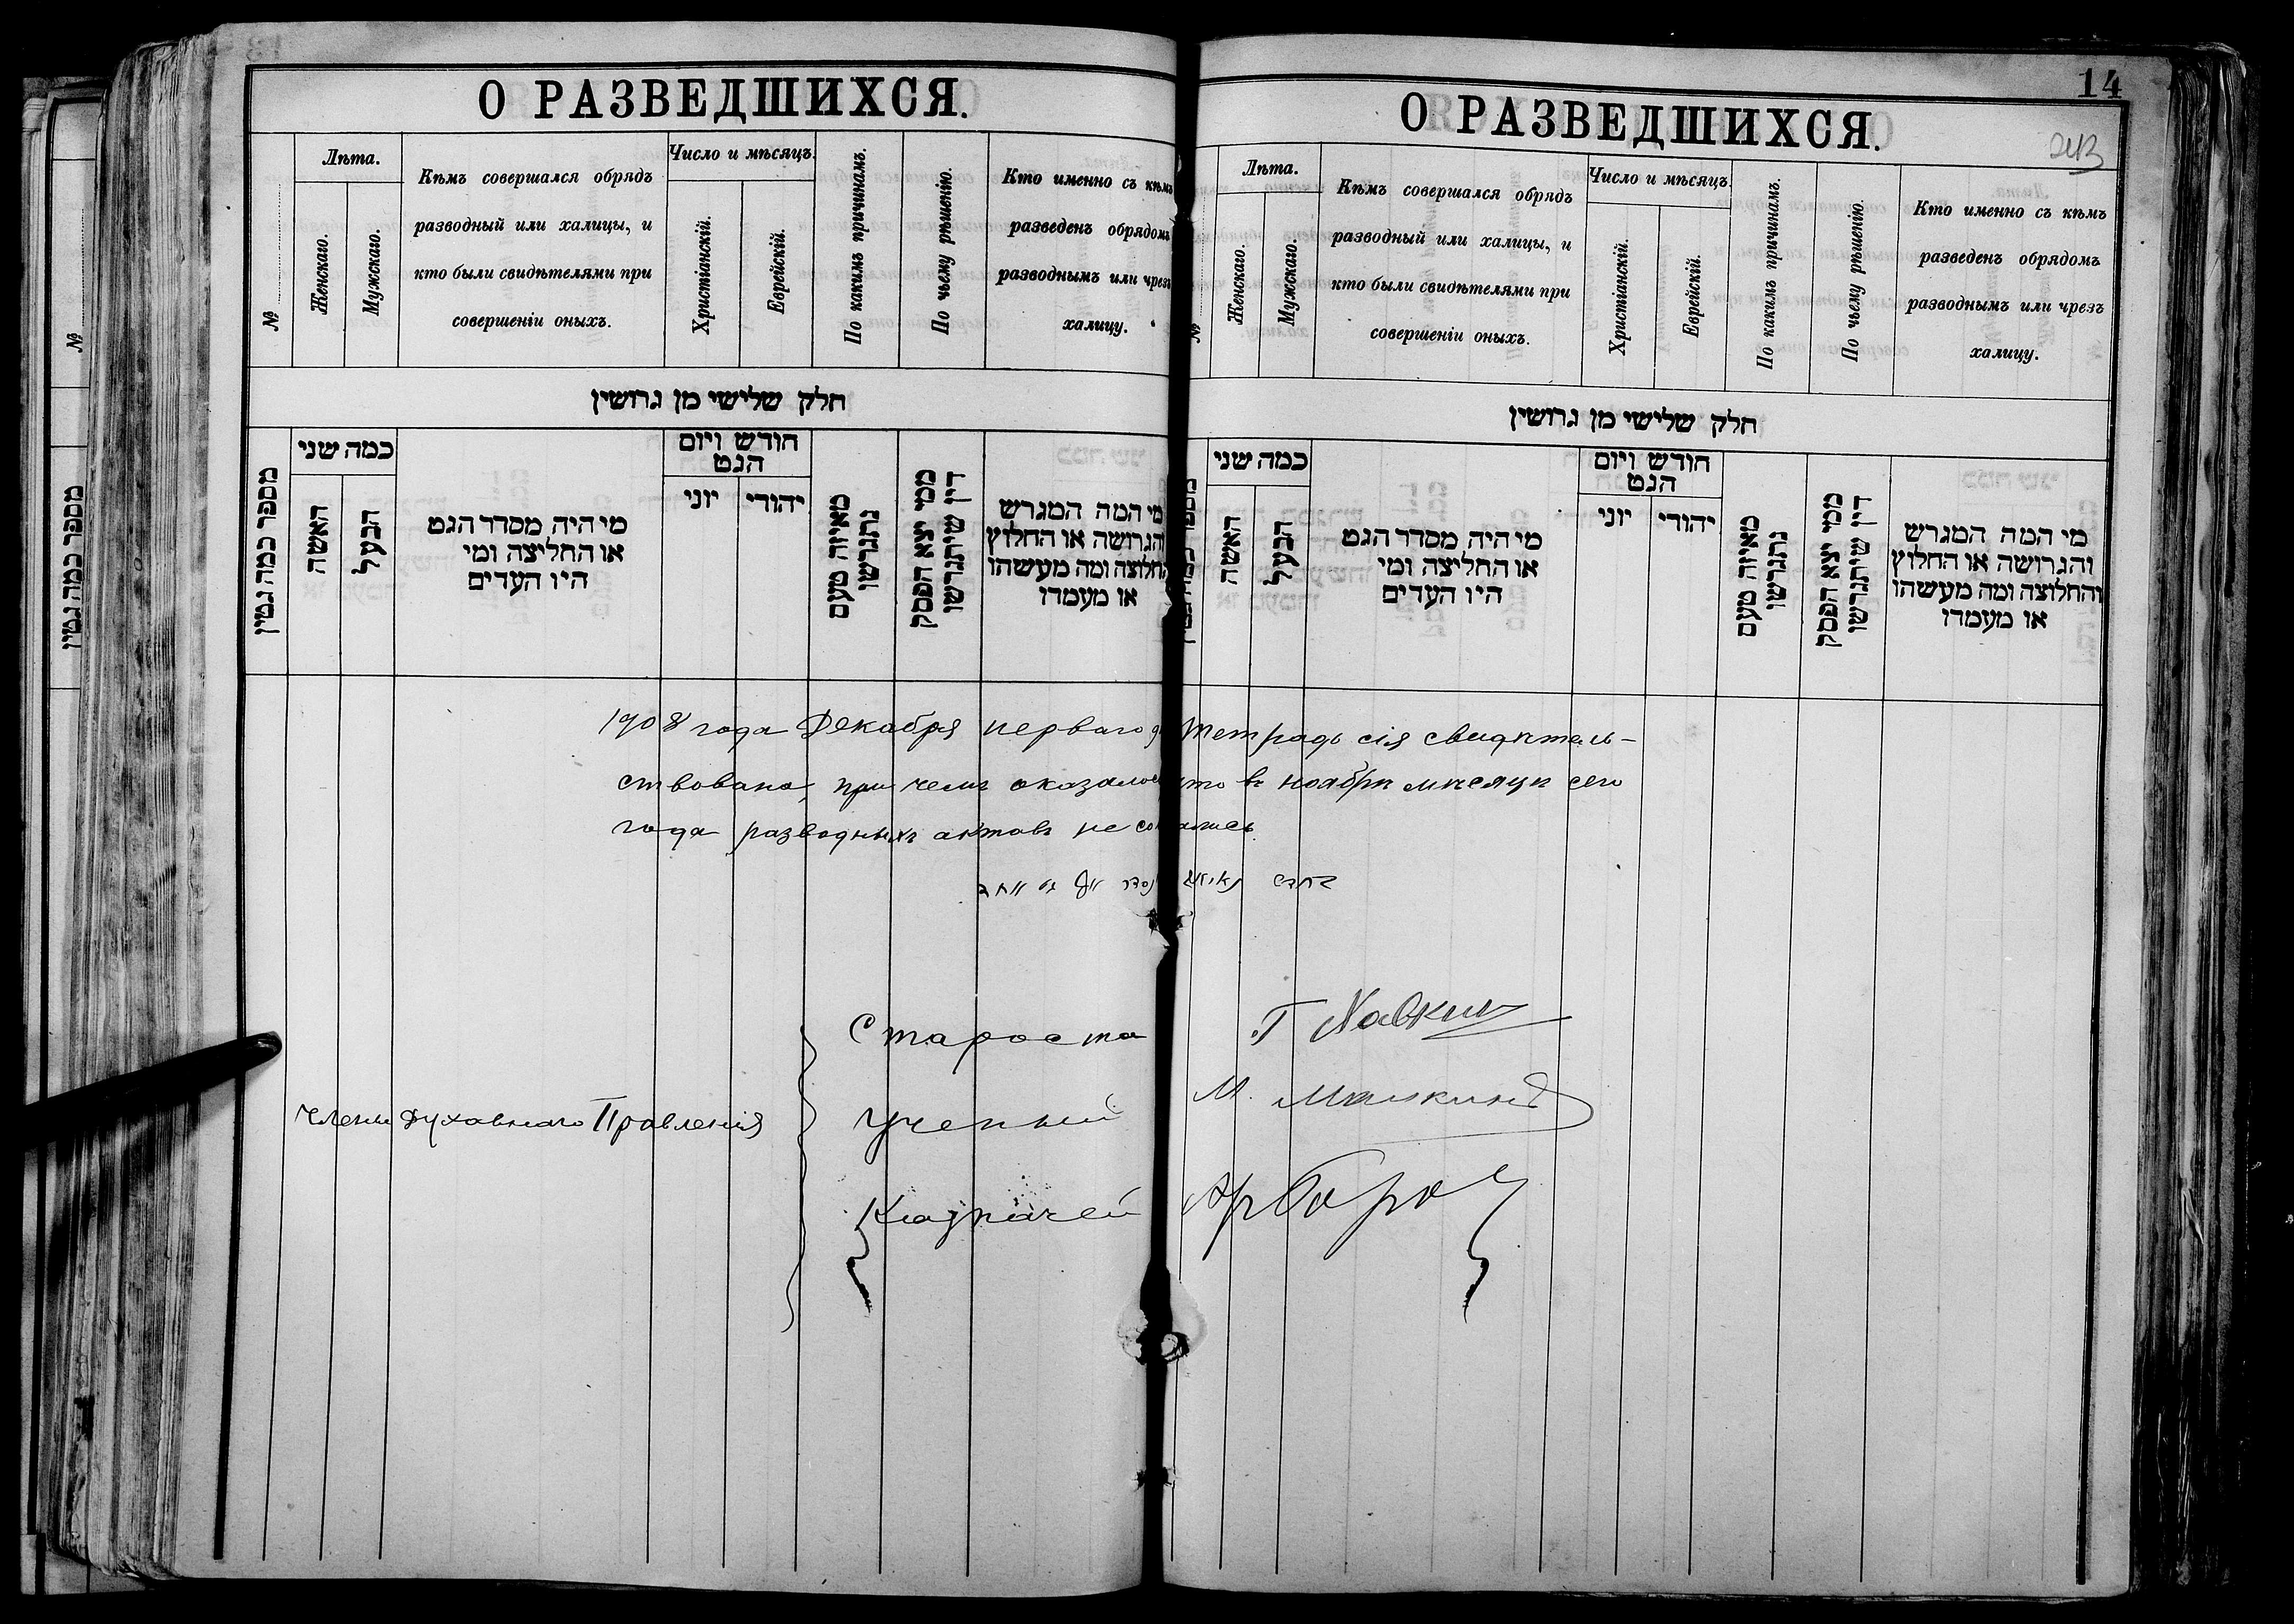 О РАЗВЕДШИХСЯ.
№
Лѣта.
Женскаго.
Мужскаго.
Кѣмъ совершался обрядъ
разводный или халицы, и
кто были свидѣтелями при
совершеніи оныхъ.
Число и мѣсяцъ.
Христіанскій.
Еврейскій.
По какимъ причинамъ.
По чьему рѣшенію.
Кто именно съ кѣмъ
разведенъ обрядомъ
разводнымъ или чрезъ
халицу.
חלק שלישי מן גרושין
מספר כמה גטין
כמה שני
האשה
הבעל
מי היה מסדר הגט
או החליצה ומי
היו העדים
חודש ויום
הגט
יוני
יהודי
מאיזה טעם
נתגרשו
ממי יצא הפסק
דין שיתגרשו
מי המה המגרש
והגרושה או החלוץ
והחלוצה ומה מעשהו
או מעמדו
14
243
О РАЗВЕДШИХСЯ.
№
Лѣта.
Женскаго.
Мужскаго.
Кѣмъ совершался обрядъ
разводный или халицы, и
кто были свидѣтелями при
совершеніи оныхъ.
Число и мѣсяцъ.
Христіанскій.
Еврейскій.
По какимъ причинамъ.
По чьему рѣшенію.
Кто именно съ кѣмъ
разведенъ обрядомъ
разводнымъ или чрезъ
халицу.
חלק שלישי מן גרושין
כמה שני
האשה
הבעל
מי היה מסדר הגט
או החליצה ומי
היו העדים
חודש ויום
הגט
יוני
יהודי
מאיזה טעם
נתגרשו
ממי יצא הפסק
דין שיתגרשו
מי המה המגרש
והגרושה או החלוץ
והחלוצה ומה מעשהו
או מעמדו
1908 года Декабря перваго тетрадь сія свидѣтель-
ствована, при чемъ оказалось что въ ноябрѣ мѣсяцѣ сего
года разводныхъ актовъ не
Члены Духовнаго Правленія
Староста Г Хавкин
Ученый М. Малкинъ
Казначей
№
מספר כמה גטין